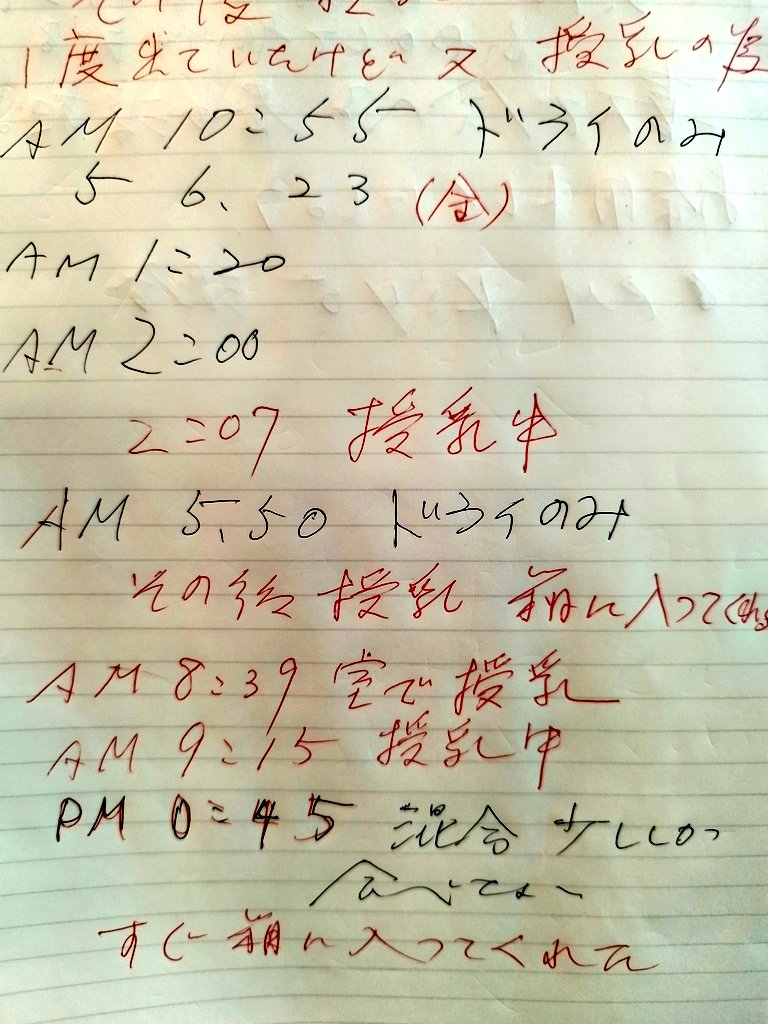 1度出ていたけど 又 授乳の為
AM 10:55 ドライのみ
5 6、23 (金)
AM 1:20
AM 2:00
2:07 授乳中
AM 5、50 ドライのみ
その後 授乳 箱に入ってくれる
AM 8:39 室で授乳
AM 9:15 授乳中
PM 0:45 混合 少ししか
食べてない
すぐ箱に入ってくれた